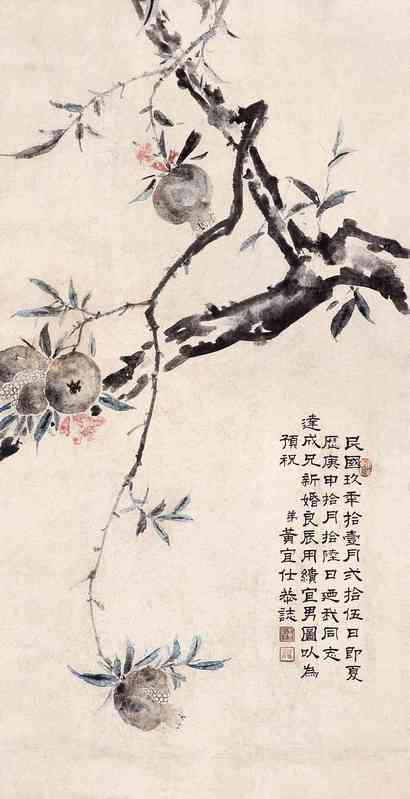 民國玖年拾壹月弍拾伍日即夏
历庚申拾月拾陸日迺我同志
達成兄新婚良辰用繢宜男圖以為
預祝
弟黃宜仕恭誌